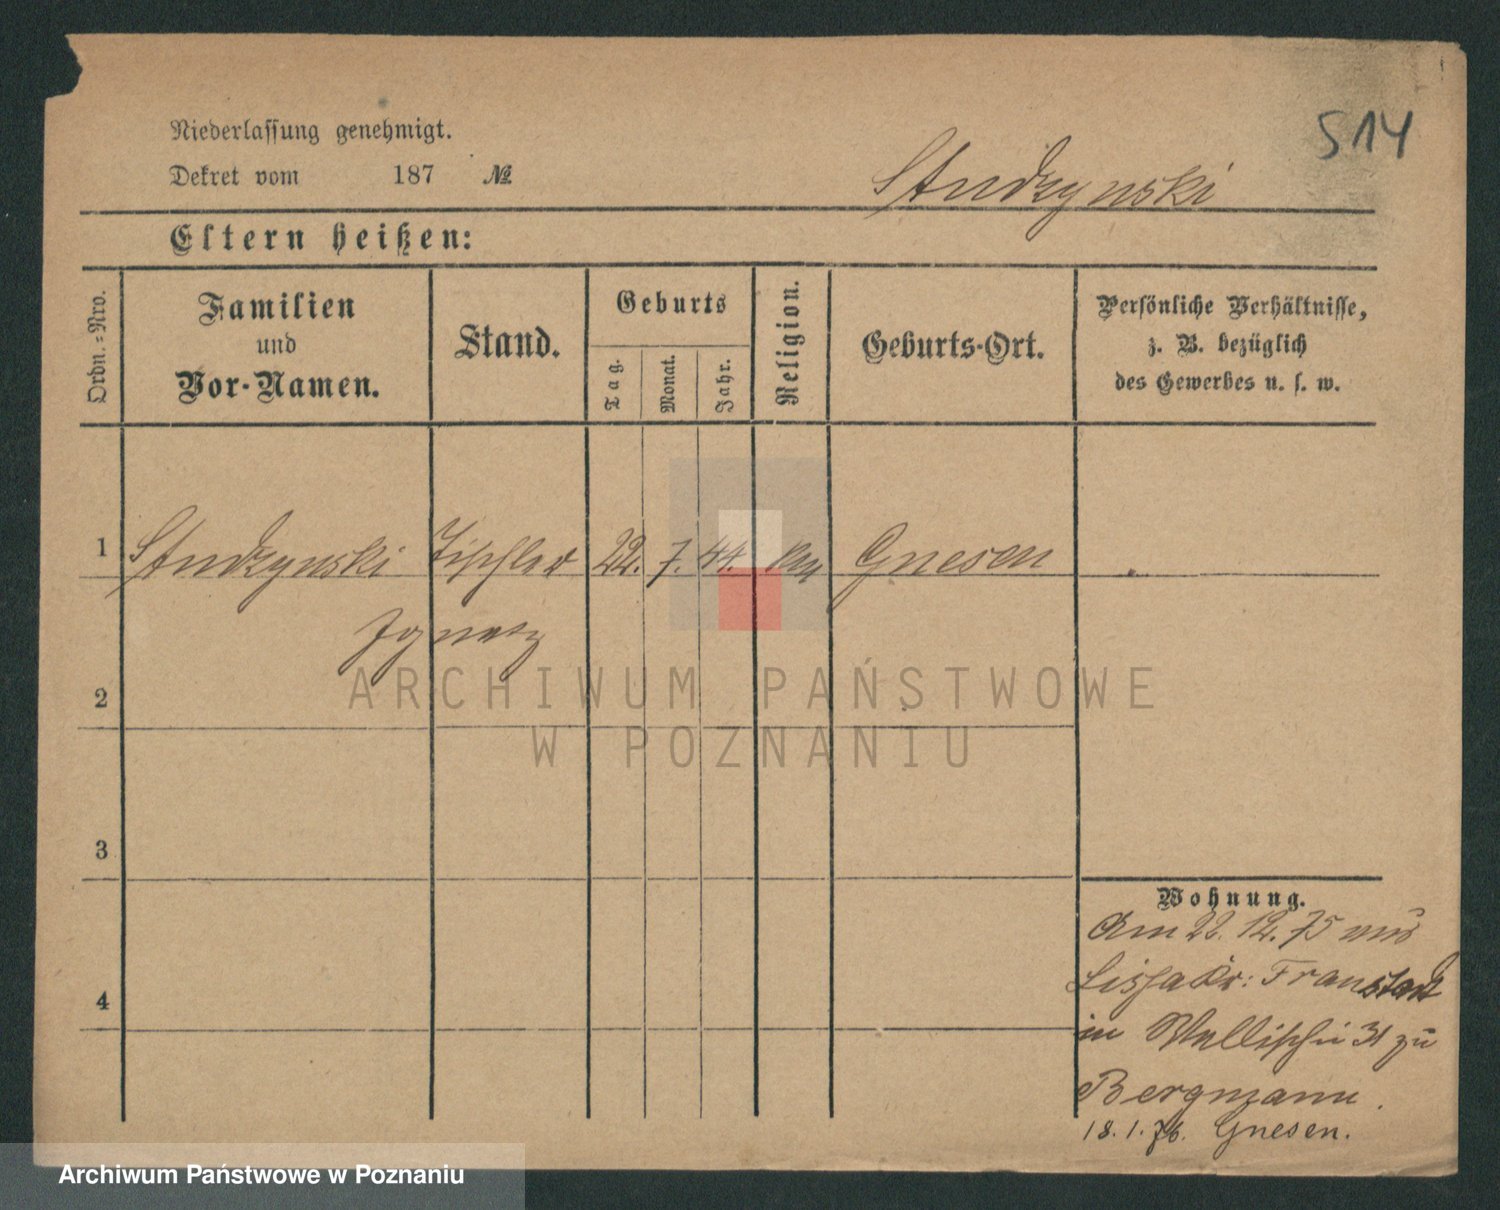 514
Niederlassung genehmigt.
Dekret vom 187 №
Studzynski
Eltern heißen:
Ordn.=Nro.
Familien
und
Vor-Namen.
Stand.
Geburts
Tag.
Monat.
Jahr.
Religion.
Geburts-Ort.
Persönliche Verhältnisse,
z. B. bezüglich
des Gewerbes u. s. w.
1 Studzynski Tischler 22. 7. 44. Gnesen
Ignatz
2
3
4
Wohnung.
Am 22. 12. 75 aus
Lissa Kr: Fraustadt
in Wallischei 31 zu
Bergmann.
18. 1. 76. Gnesen.
ARCHIWUM PAŃSTWOWE
W POZNANIU
Archiwum Państwowe w Poznaniu